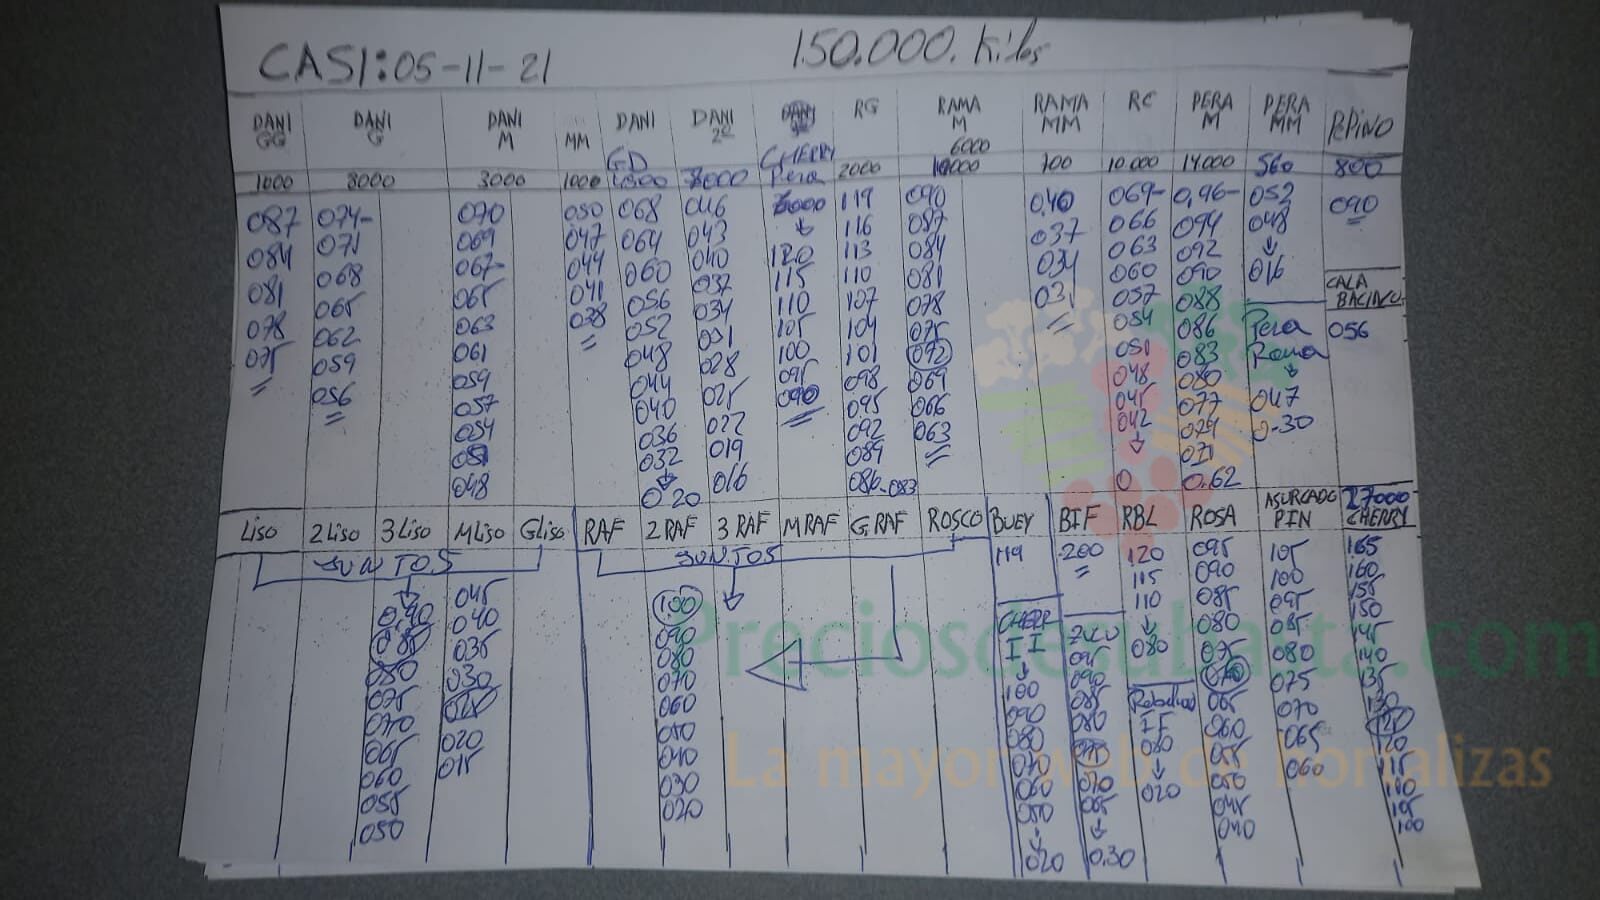 CASI: 05-11-21 150.000. Kilos
DANI GG DANI G DANI M MM DANI GD DANI 2ª CHERRY Pera RG RAMA M RAMA MM RC PERA M PERA MM PEPINO
1000 8000 3000 1000 8000 2000 6000 100 10.000 14.000 560 800
087 074- 070 050 068 046 119 090 0,40 069- 0,96- 052 090
084 071 069 047 064 043 116 087 037 066 094 048
081 068 067 044 060 040 120 113 084 034 063 092 016
078 065 065 041 056 037 115 110 081 031 060 090 CALA BACINES
075 062 063 038 052 034 110 107 078 057 088 Pera Rama 056
059 061 048 031 105 104 075 054 086 047
056 059 044 028 100 101 072 051 083 0-30
057 040 025 095 098 069 048 080
054 036 022 090 095 066 045 077
051 032 019 092 063 042 074
048 0'20 016 089 0 071
086-083 0.62
LISO 2 LISO 3 LISO M LISO G LISO RAF 2 RAF 3 RAF M RAF G RAF ROSCO BUEY BIF RBL ROSA ASURCADO PIN 27000 CHERRY
JUNTOS JUNTOS
119 200 120 095 105 165
115 090 100 160
110 085 095 155
080 080 085 150
075 080 145
070 075 140
065 070 135
060 065 130
055 060
050 120
045 115
040 110
105
100
0,90 045 100
085 040 090
080 035 080
075 030 070
070 060
065 020 050
060 015 040
055 030
050 020
CHERR II
100
090
080
070
060
050
020
095
090
085
080
070
065
0.30
020